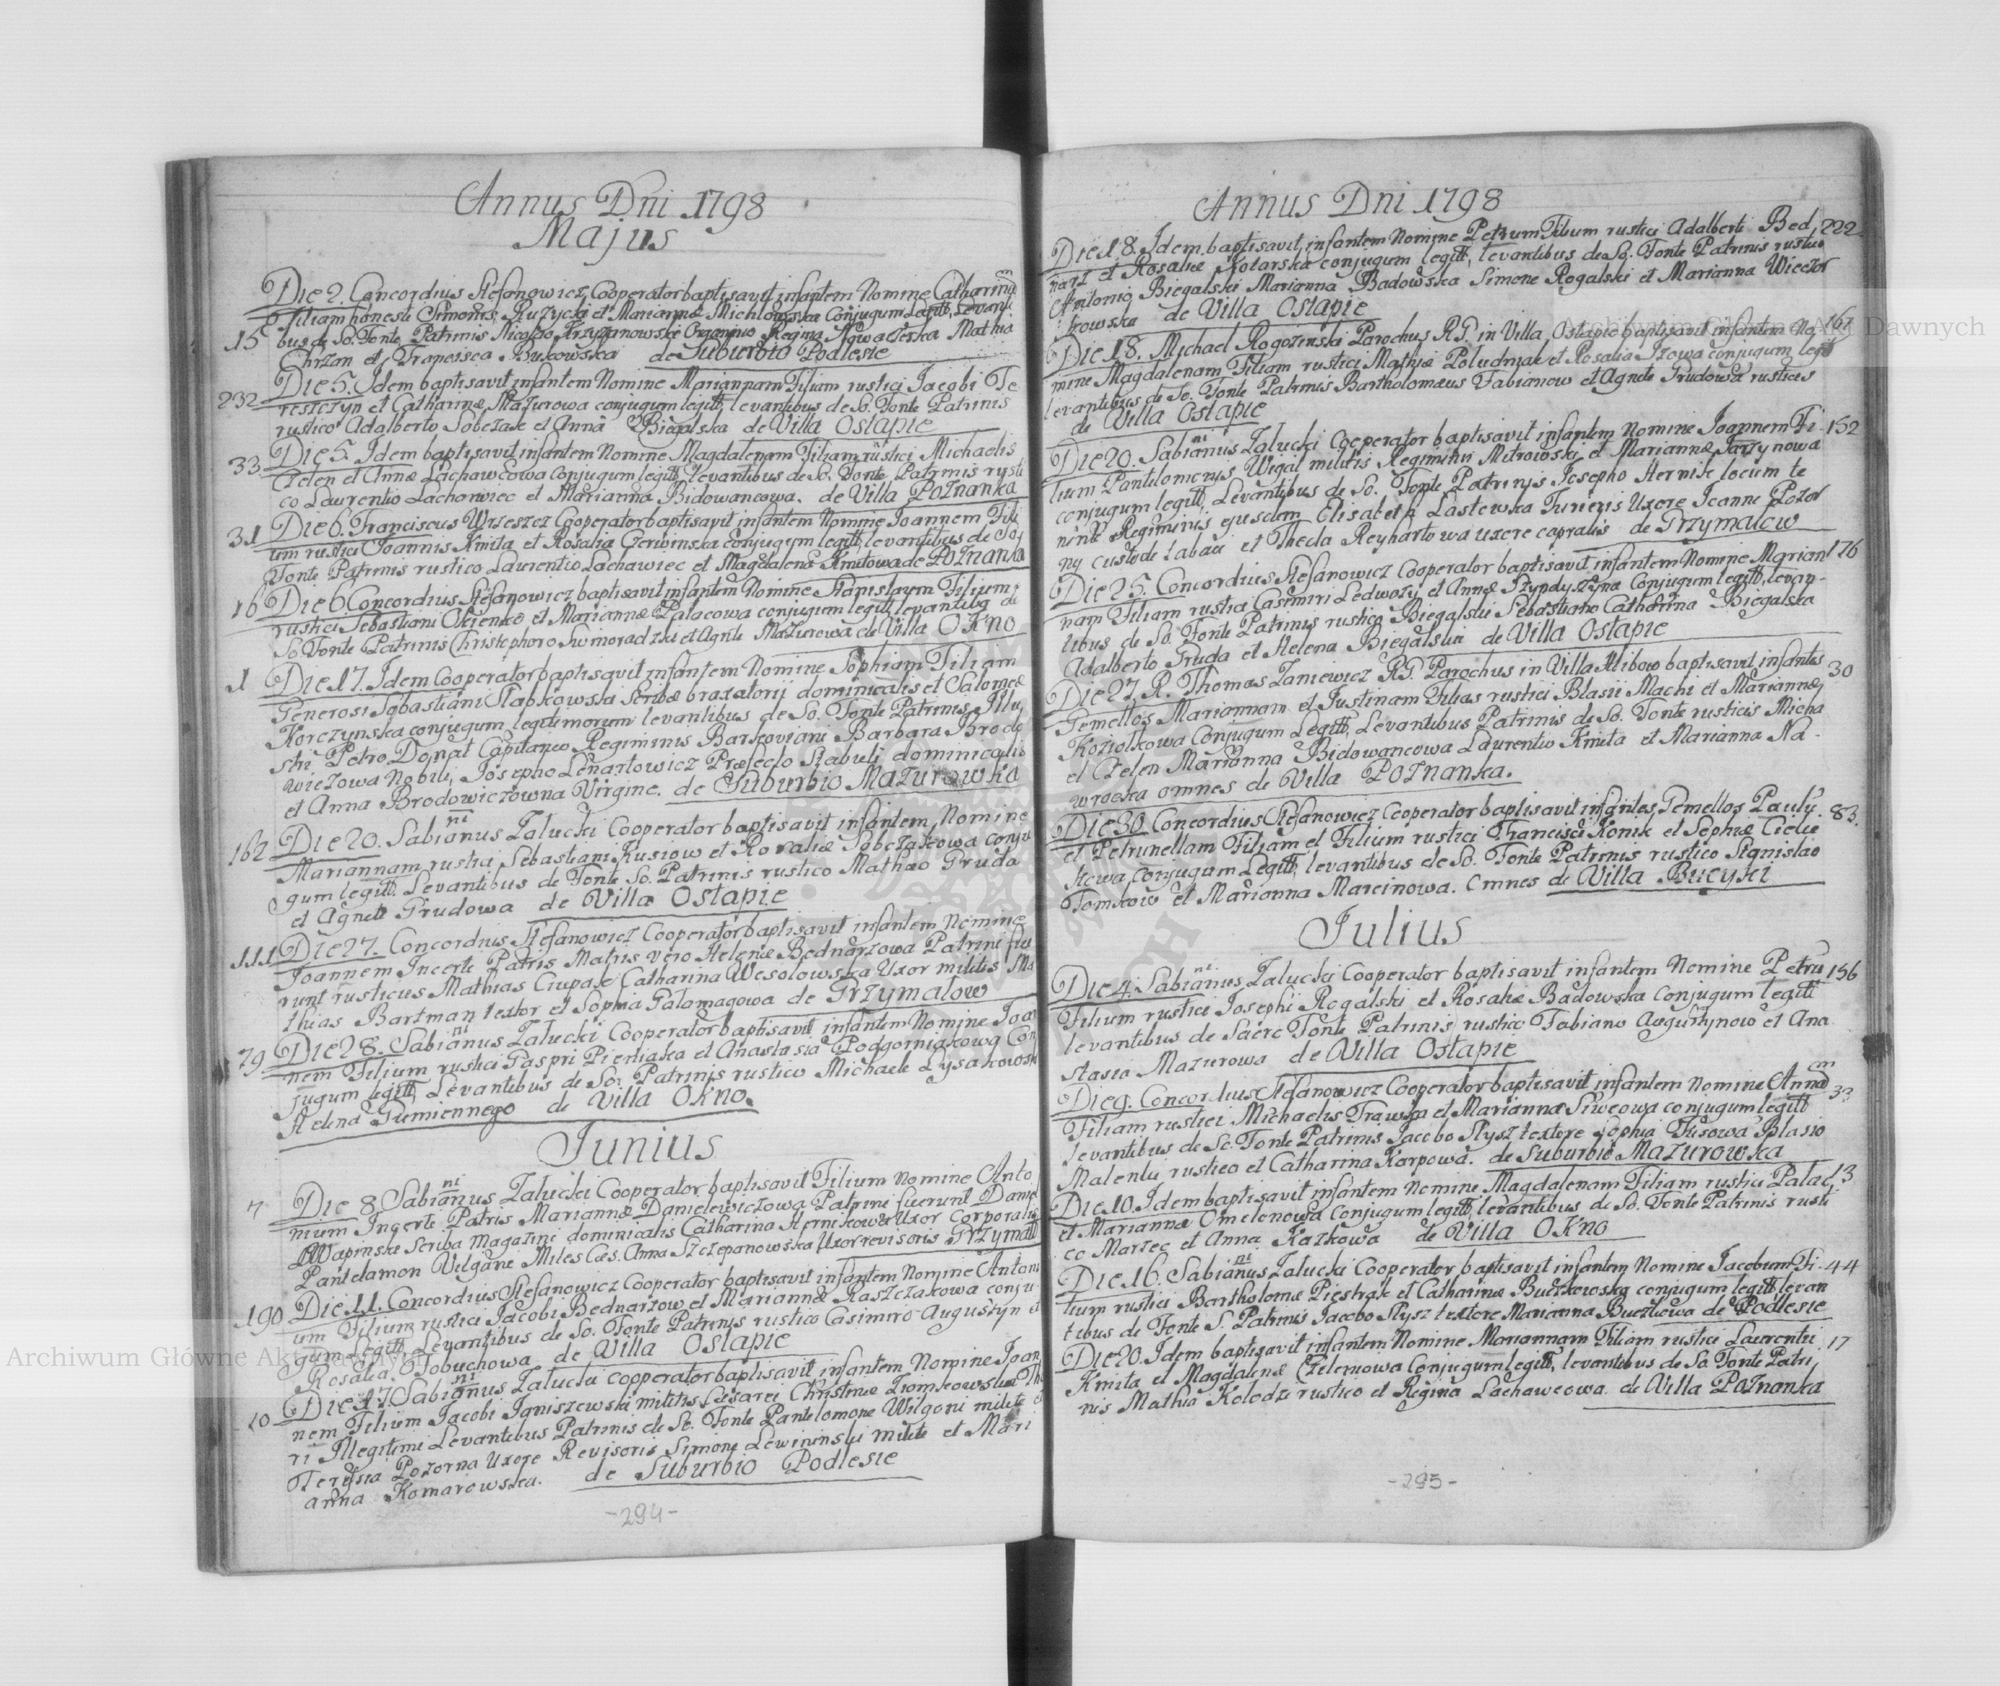 Annus Dni 1798
Majus
Die 2. Concordius Stefanowicz Cooperator baptisavit infantem Nomine Catharinam
Filiam honesti Simonis Ruzycki et Mariannæ Michlowska Conjugum Legitt, Levanti
15 bus de So. Fonte Patrinis Nicolao Krzyzanowski Regina Mathia
Chrzan et Francisca Bukowska de Suburbio Podlesie
232 Die 5. Idem baptisavit infantem Nomine Mariannam Filiam rustici Jacobi Te
reszczyn et Catharinæ Mazurowa conjugum legitt, levantibus de So. Fonte Patrinis
rustico Adalberto Sobczak et Anna Biegalska de Villa Ostapie
33 Die 5. Idem baptisavit infantem Nomine Magdalenam Filiam rustici Michaelis
Czelen et Annæ Lachawcowa Conjugum legitt, levantibus de So. Fonte Patrinis rusti
co Laurentio Lachowiec et Marianna Bidowancowa. de Villa Poznanka
31 Die 6. Franciscus Wrzeszcz Cooperator baptisavit infantem Nomine Joannem Fili
um rustici Joannis Kmita et Rosalia Czerwinska conjugum legitt, levantibus de So,
Fonte Patrinis rustico Laurentio Lachawiec et Magdalena Kmitowa de Poznanka
16 Die 6 Concordius Stefanowicz baptisavit infantem Nomine Stanislaum Filium
rustici Sebastiani Okienko et Mariannæ Palacowa conjugum legitt, levantibus de
So Fonte Patrinis Christophoro Humoradzki et Agnete Mazurowa de Villa Okno
1 Die 17. Idem Cooperator baptisavit infantem Nomine Sophiam Filiam
Generosi Sebastiani Slabkowski Scribæ braxatorii dominicalis et Salomeæ
Korczynska conjugum legitimorum levantibus de So. Fonte Patrinis Illu
stri Petro Donat Capitaneo Regiminis Barkoviani Barbara Brodo
wiczowa Nobili Josepho Lenartowicz Præfecto Stabuli dominicalis
et Anna Brodowiczowna Virgine. de Suburbio Mazurowka
162 Die 20. Sabinianus Zalucki Cooperator baptisavit infantem Nomine
Mariannam rustici Sebastiani Kusiow et Rosaliæ Sobczakowa conju
gum legitt. Levantibus de Fonte So. Patrinis rustico Mathæo Gruda
et Agnete Grudowa de Villa Ostapie
111 Die 27. Concordius Stefanowicz Cooperator baptisavit infantem Nomine
Joannem Incerte Patris Matris vero Helenæ Bednarzowa Patrini fue
runt rusticus Mathias Ciupak Catharina Wesolowska Uxor militis Ma
thias Bartman textor et Sophia Galamagowa de Grzymalow
79 Die 28. Sabinianus Zalucki Cooperator baptisavit infantem Nomine Joan
nem Filium rustici Gaspri Pieniaka et Anastasia Podgorniakowa Con
jugum legitt, Levantibus de So. Patrinis rustico Michaele Lysakowski
Helena Gumiennego de Villa Okno.
Junius
7 Die 8 Sabinianus Zalucki Cooperator baptisavit Filium Nomine Anto
nium Incerte Patris Mariannæ Danielewiczowa Patrini fuerunt Daniel
Wapinski Scriba magazini dominicalis Catharina Hernikowa Uxor Corporalis
Pantelamon Wilgane Miles Cæs. Anna Szczepanowska Uxor revisoris Grzymal
190 Die 11. Concordius Stefanowicz Cooperator baptisavit infantem Nomine Antoni
um Filium rustici Jacobi Bednarzow et Mariannæ Kaszczakowa conju
gum legitt, Levantibus de So. Fonte Patrinis rustico Casimiro Augustyn et
Rosalia Tobuchowa de Villa Ostapie
10 Die 17. Sabinianus Zalucki cooperator baptisavit infantem Nomine Joan
nem Filium Jacobi Janiszewski militis Cæsarei Christinæ
ri Illegitimi Levantibus Patrinis de So. Fonte Pantelomone Wilgoni milite et
Teresia Pozorna Uxore Revisoris Simone Lewininski milite et Mari
anna Komarowska. de Suburbio Podlesie
-294-
Annus Dni 1798
Die 18. Idem baptisavit, infantem Nomine Petrum Filium rustici Adalberti Bed 222
narz et Rosaliæ Kotarska conjugum legitt, levantibus de So. Fonte Patrinis rustico
Antonio Biegalski Marianna Badowska Simone Rogalski et Marianna Wicczor
kowska de Villa Ostapie
Die 18. Michael Rogozinski Parochus RG. in Villa Ostapie baptisavit infantem No 167
mine Magdalenam Filiam rustici Mathiæ Poludniak et Rosalia Izowa conjugum legitt
levantibus de So. Fonte Patrinis Bartholomæus Fabianow et Agnete Grudowa rusticis
de Villa Ostapie
Die 20. Sabinianus Zalucki Cooperator baptisavit infantem Nomine Joannem Fi 152
lium Pantelomonys Wigal militis Regiminis Mitrowski et Mariannæ Jarzynowa
conjugum legitt, Levantibus de So. Fonte Patrinis Josepho Hernik locum te
nente Regiminis ejusdem Elisabeth Lastewka Furieris Uxore Joanne Pozor
ny Custode Tabaci et Thecla Reyhartowa uxore capralis de Grzymalow
Die 25. Concordius Stefanowicz Cooperator baptisavit infantem Nomine Marian 176
nam Filiam rustici Casimiri Ledwozy et Annæ Szyndyszyna Conjugum legitt, levan-
tibus de So Fonte Patrinis rustico Biegalski Sebastiano Catharina Biegalska
Adalberto Gruda et Helena Biegalski de Villa Ostapie
Die 27. R. Thomas Zaniewicz RG Parochus in Villa Hlibow baptisavit infantes 30
Gemellos Mariannam et Justinam Filias rustici Blasii Machi et Mariannæ
Koziolkowa Conjugum Legitt, Levantibus Patrinis de So. Fonte rusticis Micha
el Czelen Marianna Bidowancowa Laurentio Kmita et Marianna Na
wrocka omnes de Villa Poznanka.
Die 30 Concordius Stefanowicz Cooperator baptisavit infantes Gemellos Paulu 83.
et Petrunellam Filiam et Filium rustici Francisci Konik et Sophiæ Cielic
kowa Conjugum Legitt, levantibus de So. Fonte Patrinis rustico Stanislao
Tomkow et Marianna Marcinowa. Omnes de Villa Bucyki
Julius
Die 4. Sabinianus Zalucki Cooperator baptisavit infantem Nomine Petru 156
Filium rustici Josephi Rogalski et Rosaliæ Badowska Conjugum legitt
levantibus de Sacro Fonte Patrinis rustico Fabiano Augustynow et Ana
stasia Mazurowa de Villa Ostapie
Die 9. Concordius Stefanowicz Cooperator baptisavit infantem Nomine Annam 33
Filiam rustici Michaelis Trawka et Marianna Siwcowa conjugum legitt
levantibus de So. Fonte Patrinis Jacobo Slysz textore Sophia Blasio
Malenta rustico et Catharina Karpowa. de Suburbio Mazurowka
Die 10. Idem baptisavit infantem Nomine Magdalenam Filiam rustici Palac 13
et Mariannæ Omelonowa Conjugum legitt, levantibus de So. Fonte Patrinis rusti
co Marzec et Anna Kazkowa de Villa Okno
Die 16. Sabinianus Zalucki Cooperator baptisavit infantem Nomine Jacobum Fi 44
lium rustici Bartholomæ Piestrak et Catharinæ Buczkowska conjugum legitt levan
tibus de Fonte S. Patrinis Jacobo Slysz textore Marianna Buczkowa de Podlesie
Die 20. Idem baptisavit infantem Nomine Mariannam Filiam rustici Laurentii 17
Kmita et Magdalenæ Czelenowa Conjugum legitt, levantibus de So Fonte Patri
nis Mathia Kolodzi rustico et Regina Lachawcowa. de Villa Poznanka
-295-
Archiwum Główne Akt Dawnych
Archiwum Główne Akt Dawnych